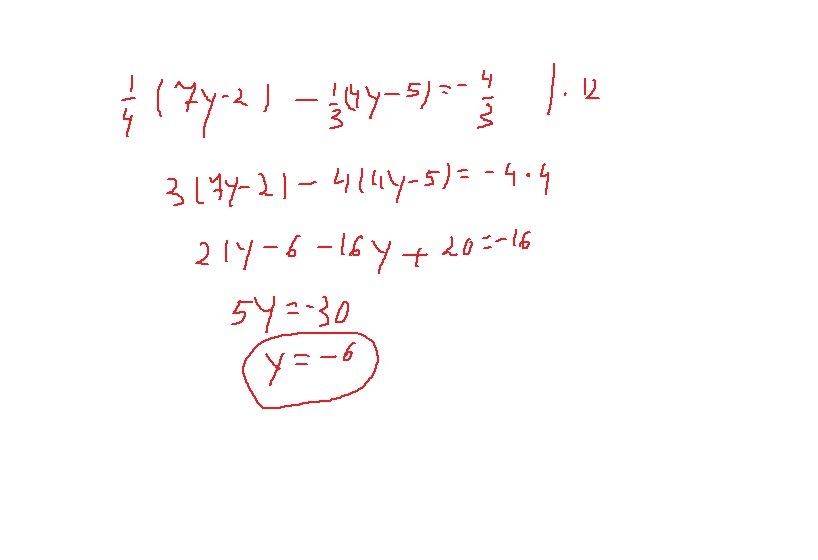 1/4 (7y-2) - 1/3(4y-5)=-4/3 |. 12
3(7y-2)-4(4y-5)=-4.4
21y-6-16y+20=-16
5y=-30
y=-6